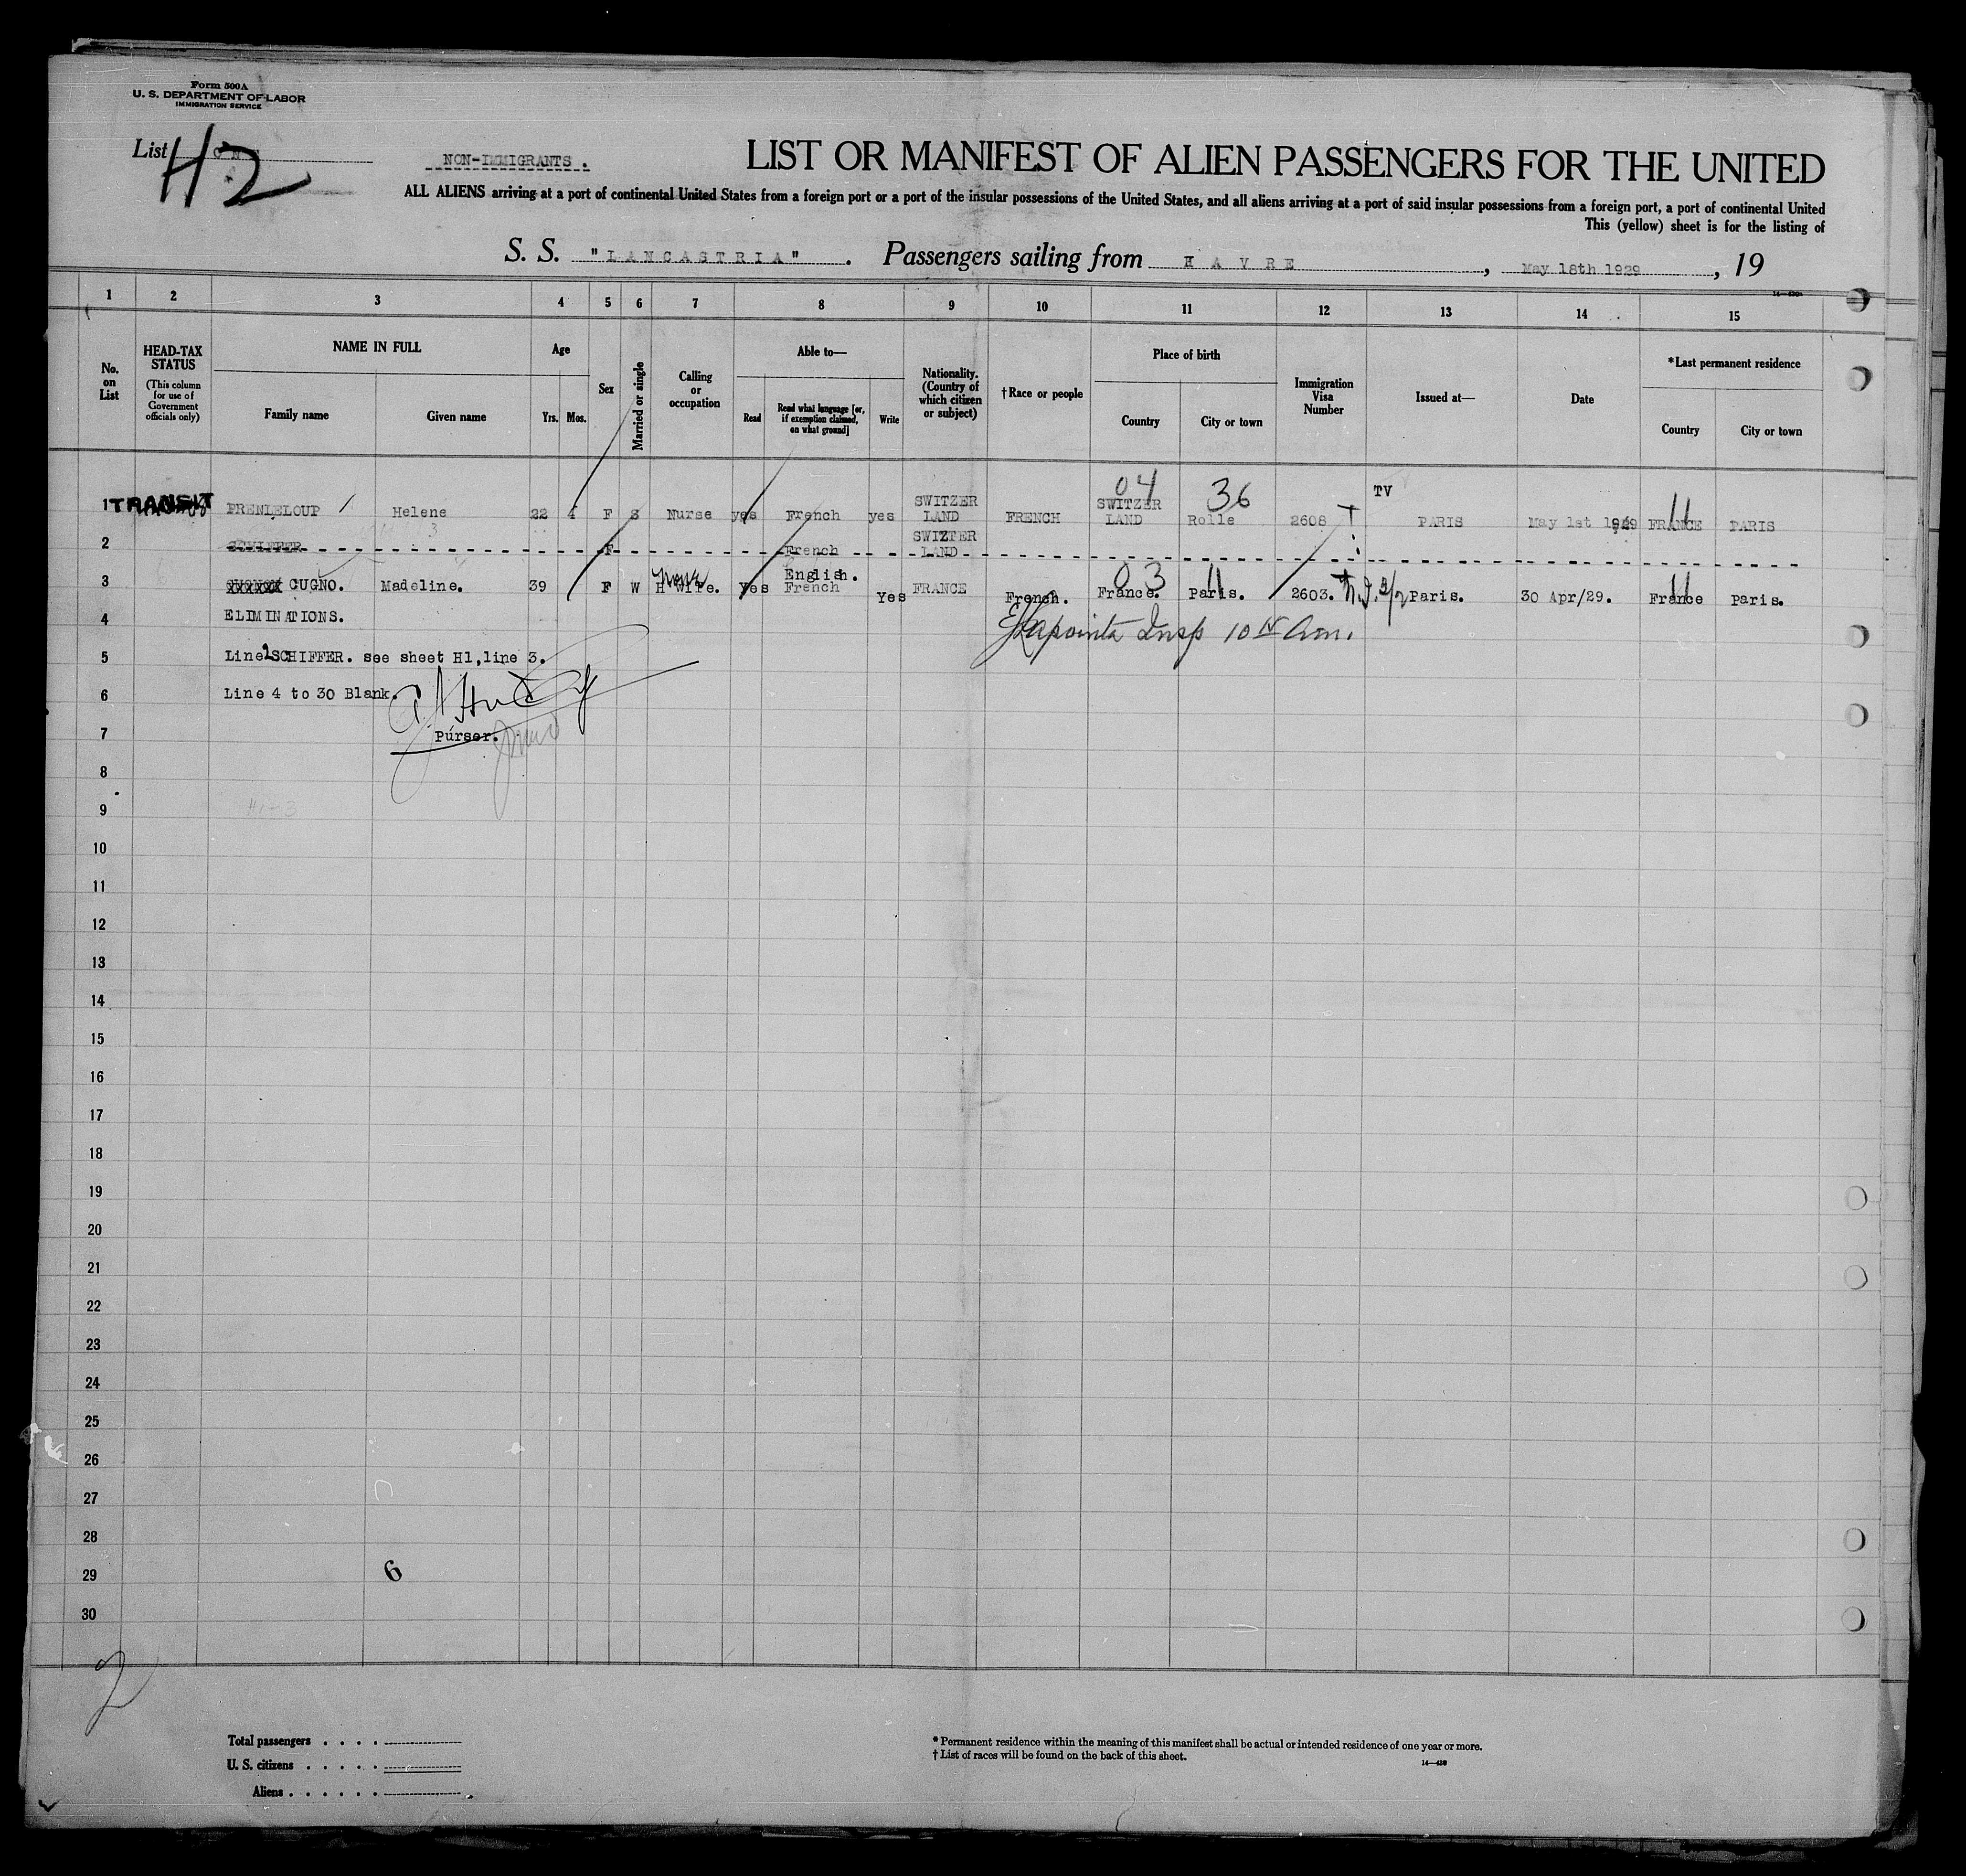 Form 500A
U. S. DEPARTMENT OF LABOR
IMMIGRATION SERVICE
List H2
NON-IMMIGRANTS.
LIST OR MANIFEST OF ALIEN PASSENGERS FOR THE UNITED
ALL ALIENS arriving at a port of continental United States from a foreign port or a port of the insular possessions of the United States, and all aliens arriving at a port of said insular possessions from a foreign port, a port of continental United
This (yellow) sheet is for the listing of
S. S. "LANCASTRIA". Passengers sailing from HAVRE, May 18th 1929, 19
1 2 3 4 5 6 7 8 9 10 11 12 13 14 15
No. on List
HEAD-TAX STATUS
(This column for use of Government officials only)
NAME IN FULL
Family name Given name
Age
Yrs. Mos.
Sex
Married or single
Calling or occupation
Able to—
Read Read what language [or, if exemption claimed, on what ground] Write
Nationality. (Country of which citizen or subject)
†Race or people
Place of birth
Country City or town
Immigration Visa Number
Issued at—
Date
*Last permanent residence
Country City or town
04 36 TV
1 TRANSIT PRENLELOUP Helene 22 4 F S Nurse yes French yes SWITZER LAND FRENCH SWITZER LAND Rolle 2608 T PARIS May 1st 1929 FRANCE PARIS
2 SCHIFFER F French SWIZTER LAND
3 CUGNO. Madeline. 39 F W H Wife. none Yes English. French Yes FRANCE French. 03 France. 11 Paris. 2603. Paris. 30 Apr/29. France 11 Paris.
4 ELIMINATIONS.
Lapointe Insp 10 Am.
5 Line 2 SCHIFFER. see sheet H1, line 3.
6 Line 4 to 30 Blank.
7 Purser.
8
9
10
11
12
13
14
15
16
17
18
19
20
21
22
23
24
25
26
27
28
29 6
30
2
Total passengers . . . .
U. S. citizens . . . . .
Aliens . . . . . .
* Permanent residence within the meaning of this manifest shall be actual or intended residence of one year or more.
† List of races will be found on the back of this sheet.
14—430